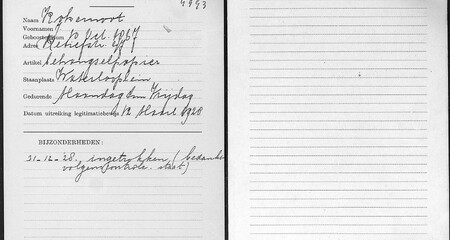 4993
Naam Kokernoot
Voornamen J
Geboortedatum 10 Oct. 1867
Adres Retiefstr
Artikel behangselpapier
Staanplaats Waterlooplein
Gedurende Maandag t/m Vrijdag
Datum uitreiking legitimatiebewijs 12 Maart 1920
BIJZONDERHEDEN:
31-12-28. ingetrokken (bedankt
volgens contrôle-staat)